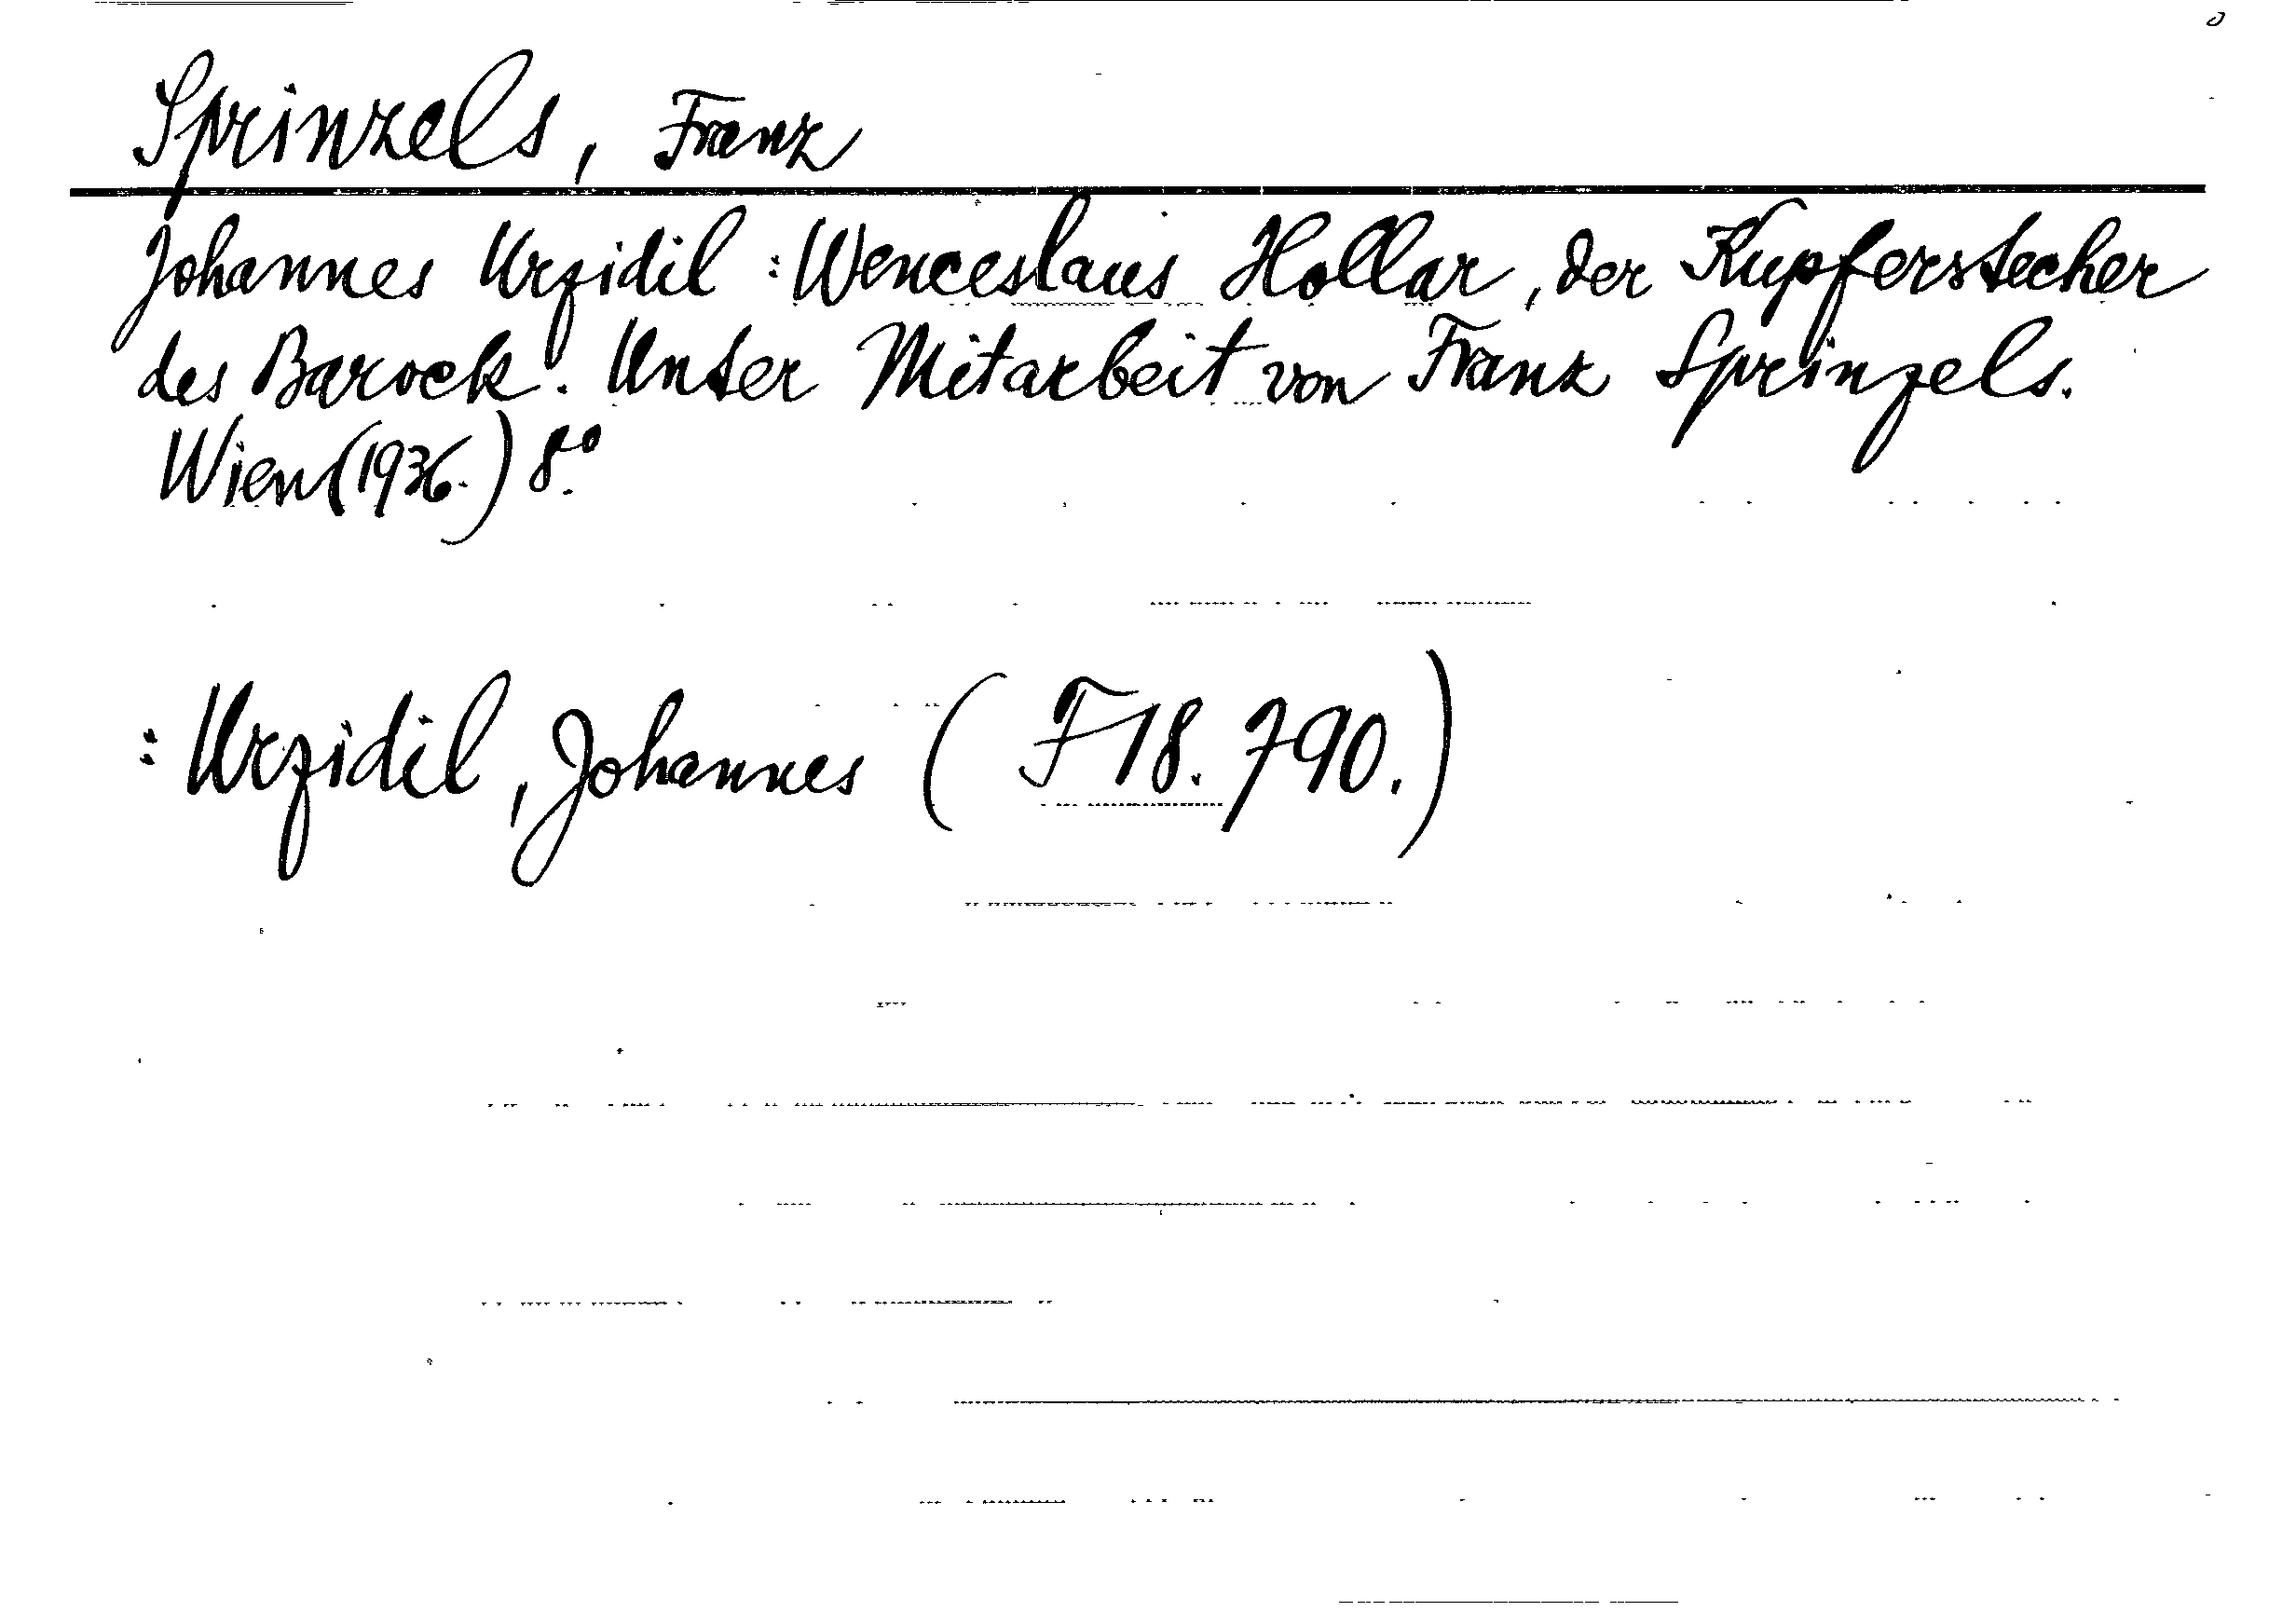 Sprinzels, Franz
Johannes Urzidil : Wenceslaus Hollar, der Kupferstecher
des Barock. Unter Mitarbeit von Franz Sprinzels.
Wien (1936.) 8°.
: Urzidil, Johannes ( F 18. 790.)